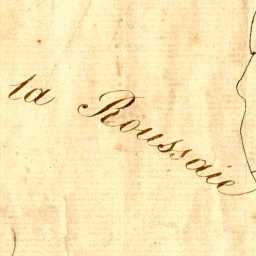 la Roussaie